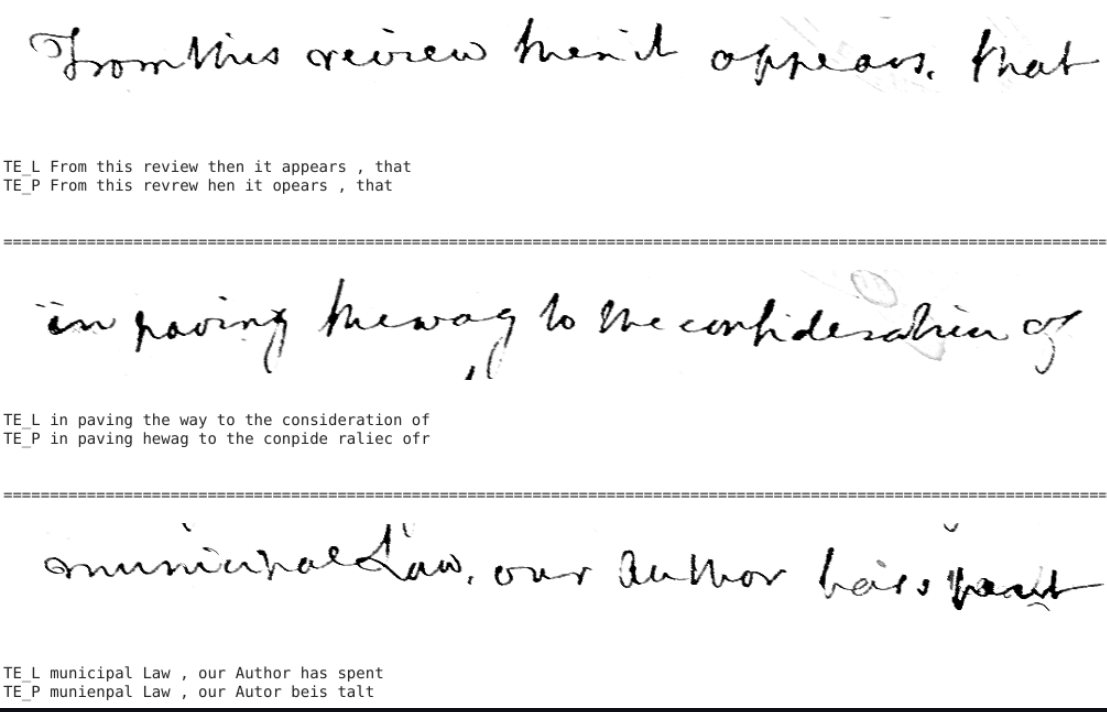 From this review then it appears, that
TE_L From this review then it appears , that
TE_P From this revrew hen it opears , that
================================================================================
in paving the way to the consideration of
TE_L in paving the way to the consideration of
TE_P in paving hewag to the conpide raliec ofr
================================================================================
municipal Law, our Author has spent
TE_L municipal Law , our Author has spent
TE_P munienpal Law , our Autor beis talt